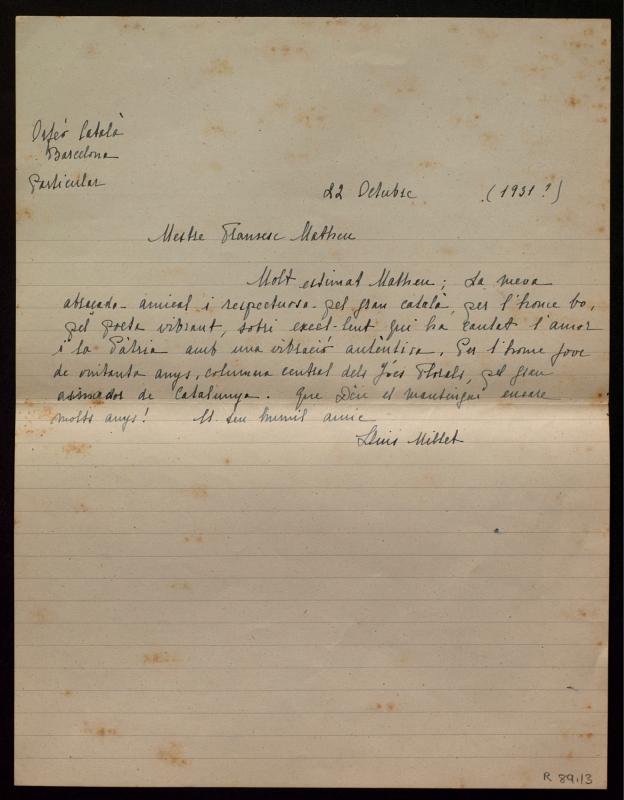 Orfeó Català
Barcelona
Particular
22 Octubre (1931?)
Mestre Fransesc Matheu
Molt estimat Matheu; La meva
abraçada amical i respectuosa pel gran català, per l'home bo,
pel poeta vibrant, sobri excel-lent qui ha cantat l'amor
i la Pàtria amb una vibració autèntica. Per l'home jove
de vuitanta anys, columna central dels Jocs Florals, pel gran
aimador de Catalunya. Que Déu el mantingui encare
molts anys! El seu humil amic
Lluis Millet
R 89.13